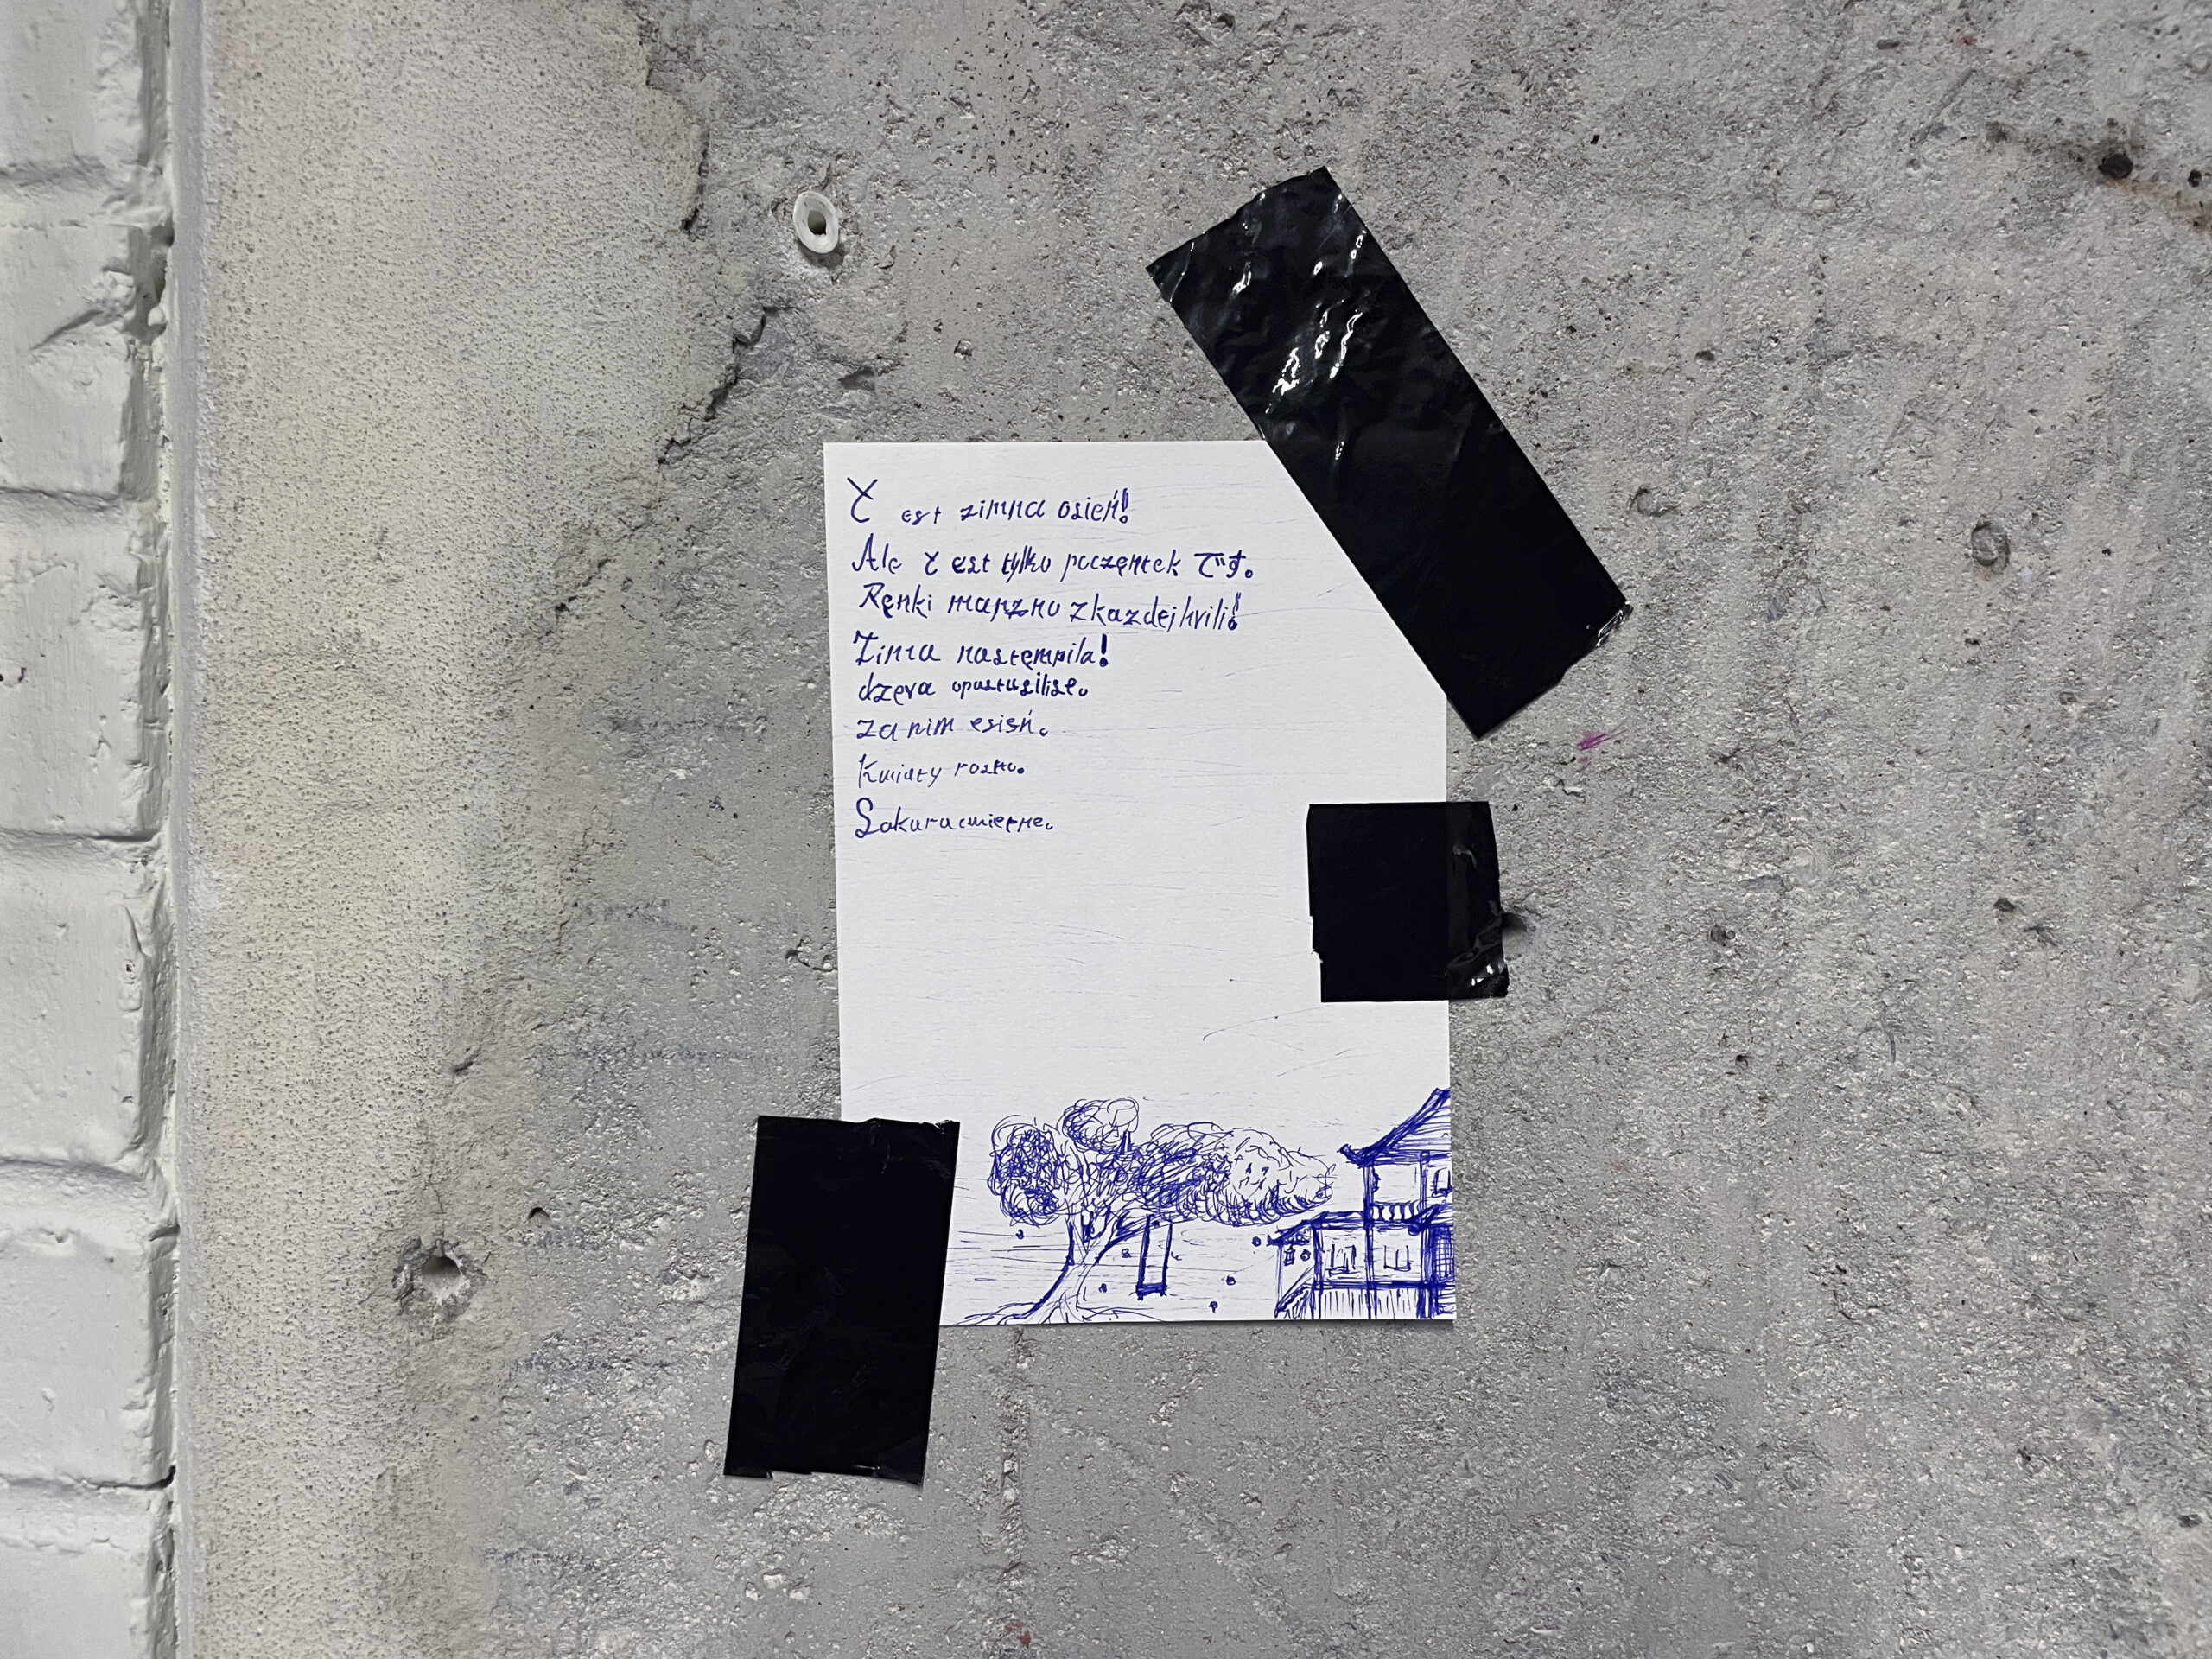 と est zimna osień!
Ale と est tylko poczęntek です。
Ręnki marzno z kazdej hvili!
Zima nastęmpila!
dzęva opustusilise。
za nim esień。
Kwiaty rosno。
Sakura